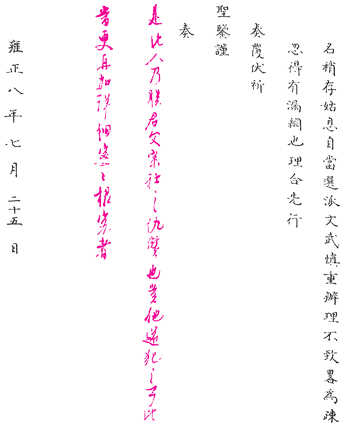 名稍存姑息自當選派文武慎重辦理不致畧為疎
忽得有漏網也理合先行
奏覆伏祈
聖鑒謹
奏
是此人乃朕君父宗社之仇讐也豈他逆犯之可比
當更再加詳細根究者
雍正八年七月二十五日